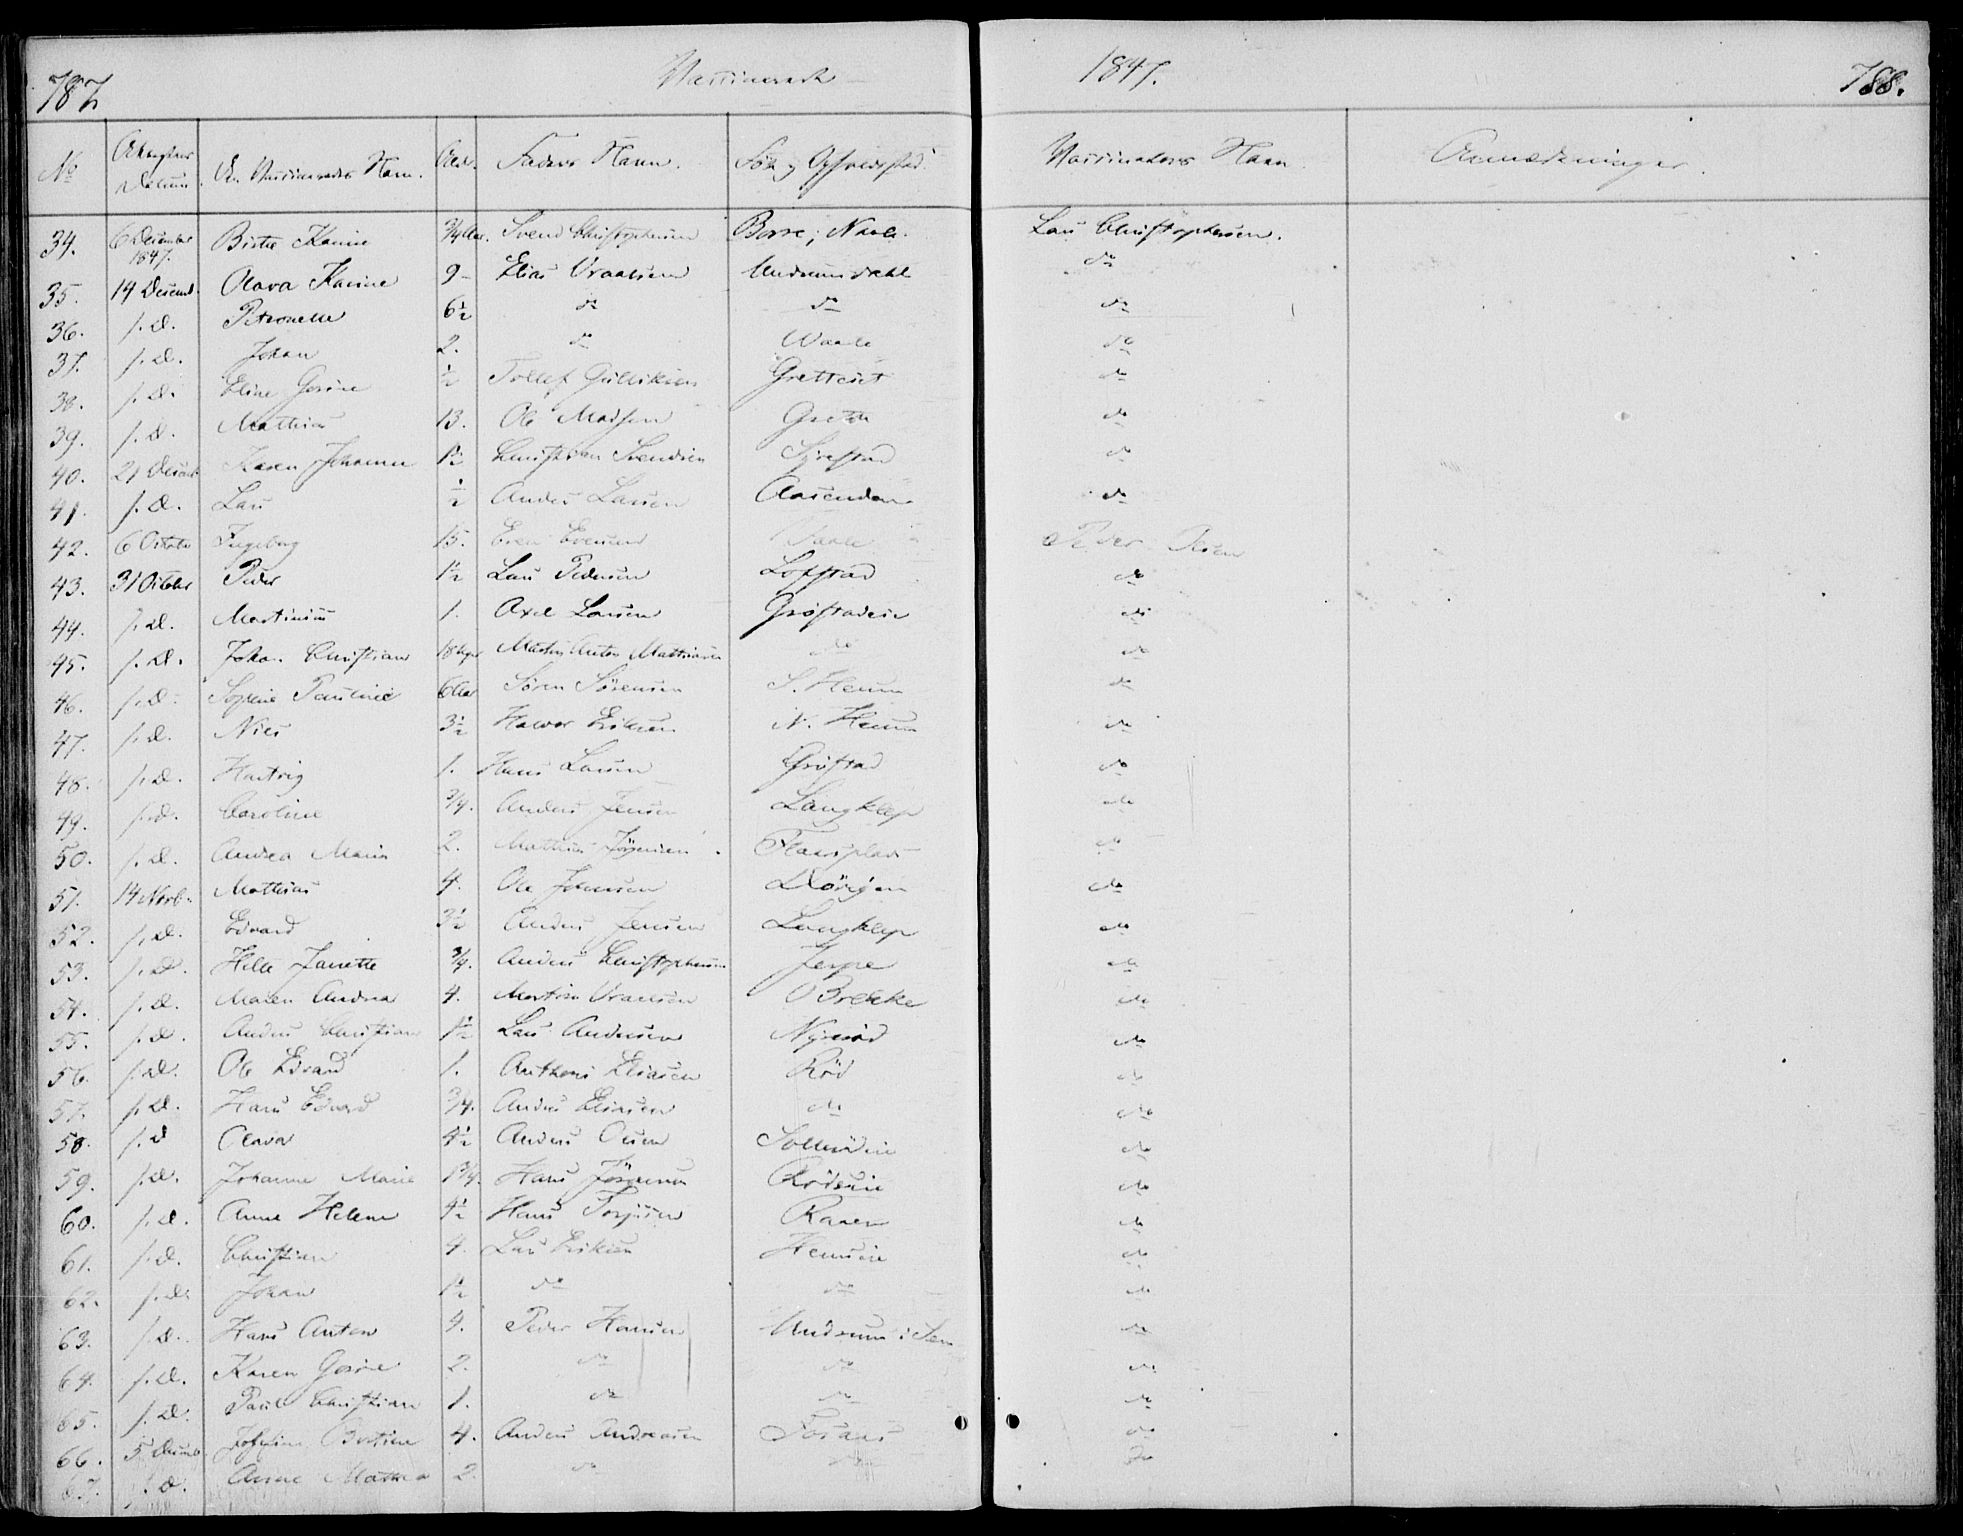 787. Vaccinerede 1847. 788.
No | Attestens Datum. | De Vaccineredes Navn. | Ald. | Faders Navn. | Sogn og Opholdssted | Vaccinateurs Navn | Anmærkninger.
34. | 6 December 1847. | Birthe Karine | 3/4 Aar. | Svend Christophersen | Borre, Navle. | Lars Christophersen.
35. | 14 Decemb. | Olava Karine | 9 | Elias Vraalsen | Undrumsdahl | do
36. | s. D. | Petronelle | 6½ | do | do | do
37. | s. D. | Johan | 2. | do | Vaale | do
38. | s. D. | Eline Gesine | ½ | Tollef Gulliksen | | do
39. | s. D. | Mathias | 13. | Ole Madsen | | do
40. | 21 Decemb | Karen Johanne | 1½ | Christian Svendsen | | do
41. | s. D. | Lars | ½ | Anders Larsen | | do
42. | 6 Octobr | Ingeborg | 15. | Even Evensen | Vaale | Peder Olsen
43. | 31 Octobr | Peder | 1½ | Lars Pedersen | Lofstad | do
44. | s. D. | Martinius | 1. | Axel Larsen | | do
45. | s. D. | Joha. Christian | 18 Uger | Martin Anton Mathiasen | do | do
46. | s. D. | Sophie Pauline | 6 Aar | Sören Sörensen | S. Heum | do
47. | s. D. | Nils | 3½ | Halvor Eriksen | N. Heum | do
48. | s. D. | Hartvig | 1. | Hans Larsen | Gröfstad | do
49. | s. D. | Caroline | 3/4. | Anders Jensen | Langklep | do
50. | s. D. | Andrea Maria | 2. | Mathias Jörgensen | | do
51. | 14 Novb. | Mathias | 4. | Ole Johnsen | | do
52. | s. D. | Edvard | 3½ | Anders Jensen | Langklep | do
53. | s. D. | Helle Janette | 3/4. | Anders Christophersen | Jerpe | do
54. | s. D. | Maren Andrea | 4. | Martin Vraalsen | Brekke | do
55. | s. D. | Anders Christian | 1½ | Lars Andersen | Nyeröd | do
56. | s. D. | Ole Edvard | 1. | Anthoni Eliasen | Röd | do
57. | s. D. | Hans Edvard | 3/4. | Anders Eliasen | do | do
58. | s. D | Olava | 4½ | Anders Olsen | | do
59. | s. D. | Johanne Marie | 1¾. | Hans Jörgensen | Rödseie | do
60. | s. D. | Anne Helene | 4½ | Hans Torjusen | Raaen | do
61. | s. D. | Christian | 4. | Lars Eriksen | Heumseie | do
62. | s. D. | Johan | 1½ | do | do | do
63. | s. D. | Hans Anton | 4. | Peder Hansen | Undrum i Sem | do
64. | s. D. | Karen Gesine | 2. | do | do | do
65. | s. D. | Paul Christian | 1. | do | do | do
66. | 5 Decemb. | Josephine Bertine | 4. | Anders Andreasen | Fosaas | do
67. | s. D. | Anne Mathea | 2. | do | do | do